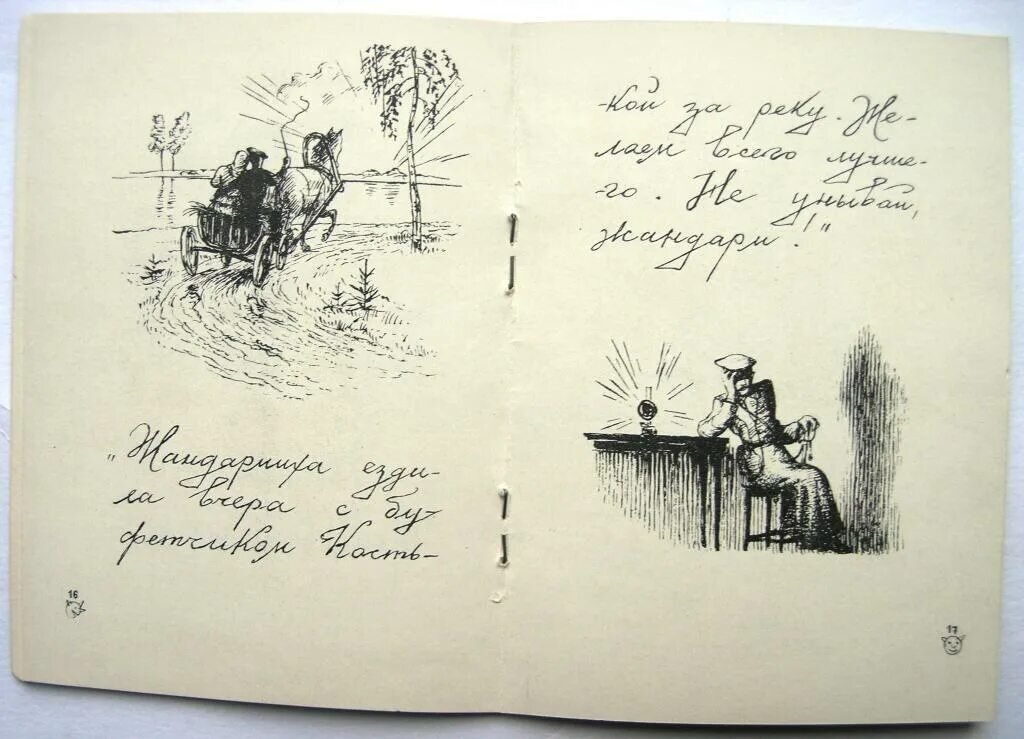 "Жандармиха езди-
ла вчера с бу-
фетчиком Кость-
16
-кой за реку. Же-
лаем всего лучше-
-го. Не унывай,
жандарм!"
17